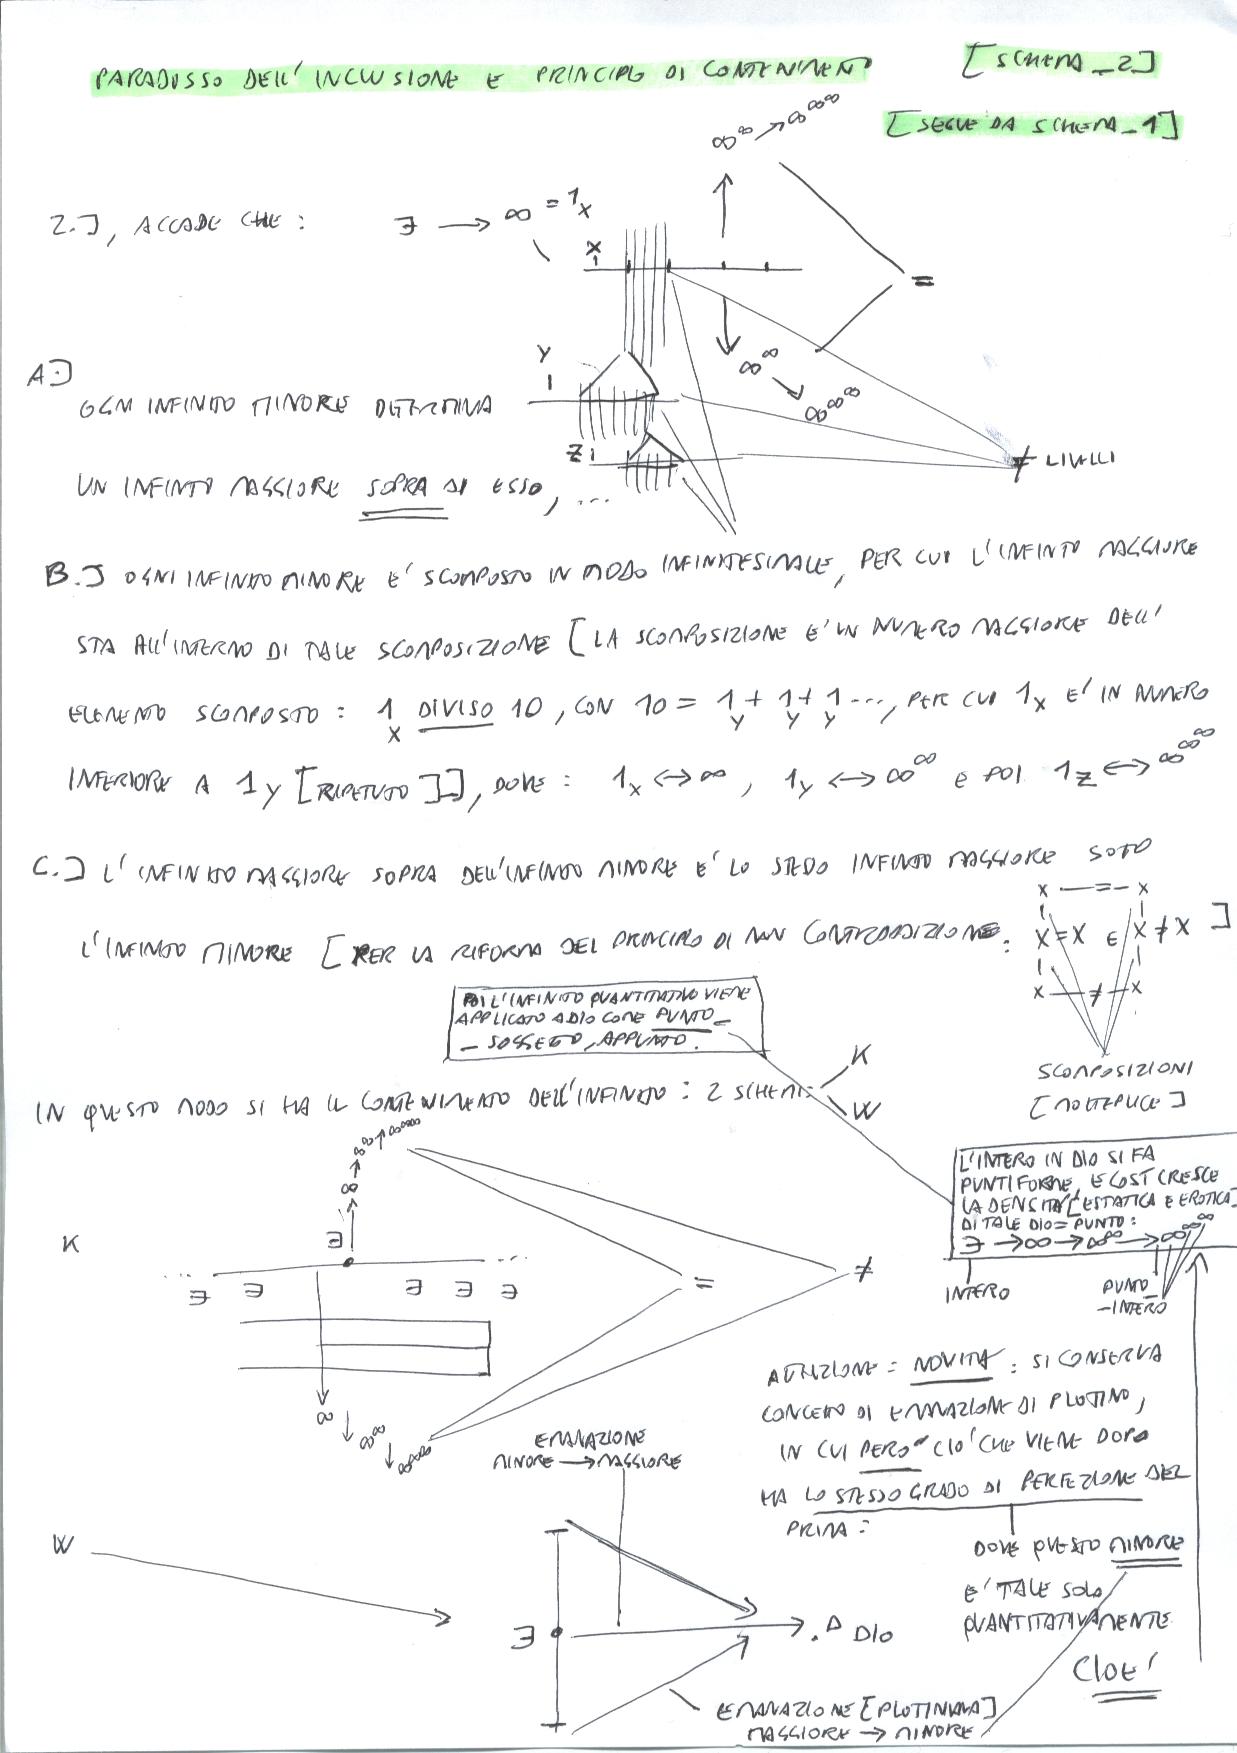 PARADOSSO DELL' INCLUSIONE E PRINCIPIO DI CONTENIMENTO
[SCHEMA_2]
[SEGUE DA SCHEMA_1]
2.], ACCADE CHE : ∃ → ∞ = 1x
∞^∞ → ∞^∞^∞
X
=
Y
∞^∞
∞^∞^∞
Z
≠ LIVELLI
A.]
OGNI INFINITO MINORE DETERMINA
UN INFINITO MAGGIORE SOPRA DI ESSO, ...
B.] OGNI INFINITO MINORE E' SCOMPOSTO IN MODO INFINITESIMALE, PER CUI L'INFINITO MAGGIORE
STA ALL'INTERNO DI TALE SCOMPOSIZIONE [LA SCOMPOSIZIONE E' UN NUMERO MAGGIORE DELL'
ELEMENTO SCOMPOSTO : 1x DIVISO 10, CON 10 = 1y + 1y + 1y ..., PER CUI 1x E' IN NUMERO
INFERIORE A 1y [RIPETUTO]], DOVE : 1x ↔ ∞, 1y ↔ ∞^∞ E POI 1z ↔ ∞^∞^∞
C.] L'INFINITO MAGGIORE SOPRA DELL'INFINITO MINORE E' LO STESSO INFINITO MAGGIORE SOTTO
L'INFINITO MINORE [PER LA RIFORMA DEL PRINCIPIO DI NON CONTRADDIZIONE :
X — = — X
X = X E X ≠ X ]
X — ≠ — X
SCOMPOSIZIONI
[MOLTEPLICE]
POI L'INFINITO QUANTITATIVO VIENE
APPLICATO A DIO COME PUNTO_
_ SOGGETTO, APPUNTO.
IN QUESTO MODO SI HA IL CONTENIMENTO DELL'INFINITO : 2 SCHEMI :
K
W
L'INTERO IN DIO SI FA
PUNTIFORME, E COSI' CRESCE
LA DENSITA' [ESTATICA E EROTICA_
DI TALE DIO = PUNTO :
∃ → ∞ → ∞^∞ → ∞^∞^∞
INTERO
PUNTO_
_INTERO
K
∞ → ∞^∞ → ∞^∞^∞
∃
... ∃ ∃ ∃ ∃ ∃ ...
= ≠
∞
∞^∞
∞^∞^∞
ATTENZIONE = NOVITA' : SI CONSERVA
CONCETTO DI EMANAZIONE DI PLOTINO,
IN CUI PERO' CIO' CHE VIENE DOPO
HA LO STESSO GRADO DI PERFEZIONE DEL
PRIMA :
DOVE QUESTO MINORE
E' TALE SOLO
QUANTITATIVAMENTE
CIOE'
EMANAZIONE
MINORE → MAGGIORE
W
∃ DIO
EMANAZIONE [PLOTINIANA]
MAGGIORE → MINORE